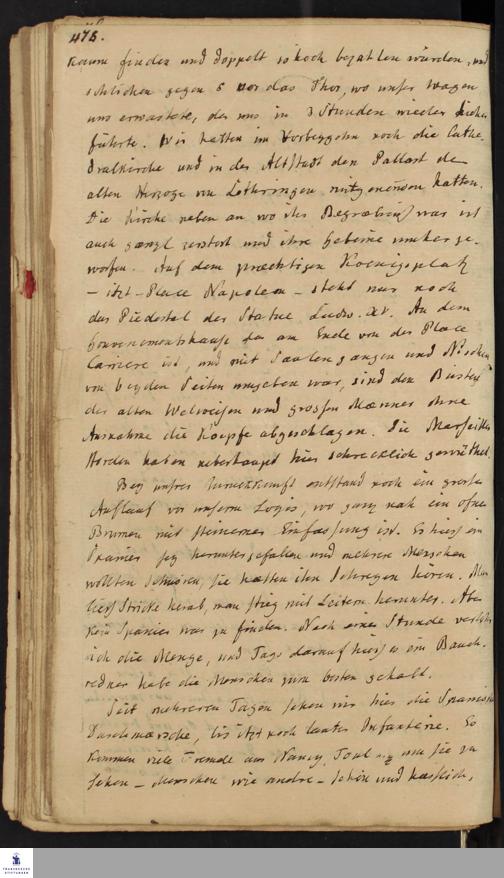 478.
kaum finden und doppelt so hoch bezahlen würden, und
schlichen gegen 6 vor das Thor, wo unser Wagen
uns erwartete, der uns in 3 Stunden wieder hieher
führte. Wir hatten im Vorbeygehn noch die Cathe-
dralkirche und in der Altstadt den Pallast der
alten Herzoge von Lothringen mitgenommen hatten.
Die Kirche neben an wo ihr Begräbniß war ist
auch gänzl. zerstört und ihre Gebeine umher ge-
worfen. Auf dem praechtigen Koenigsplatz
– itzt – Place Napoleon – steht nur noch
das Piedestal der Statue Ludw. XV. An dem
Gouvernementshause das am Ende von der Place
Carriere ist, und mit Saulengaengen und Nischen
von beyden Seiten umgeben war, sind den Büsten
der alten Weltweisen und grossen Maenner ohne
Ausnahme die Koepfe abgeschlagen. Die Marseiller
Horden haben ueberhaupt hier schrecklich gewüthet.
Bey unsrer Zurückkunft entstand noch ein grosser
Auflauf vor unserm Logis, wo ganz nah ein ofner
Brunnen mit steinerner Einfassung ist. Es hiess ein
Spanier sey heruntergefallen und mehrere Menschen
wollten schwören, sie hätten ihn schreyen hören. Man
liess Stricke herab, man stieg mit Leitern herunter. Aber
kein Spanier war zu finden. Nach einer Stunde verliess
sich die Menge, und Tags darauf hiess es ein Bauch-
redner habe die Menschen zum besten gehabt.
Seit mehreren Tagen sehen wir hier die Spanischen
Durchmärsche, bis itzt noch lauter Infanterie. Es
kommen viele Fremde aus Nancy, Toul um sie zu
sehen – Menschen wie andre – schön und haeslich,
FRANCKESCHE
STIFTUNGEN